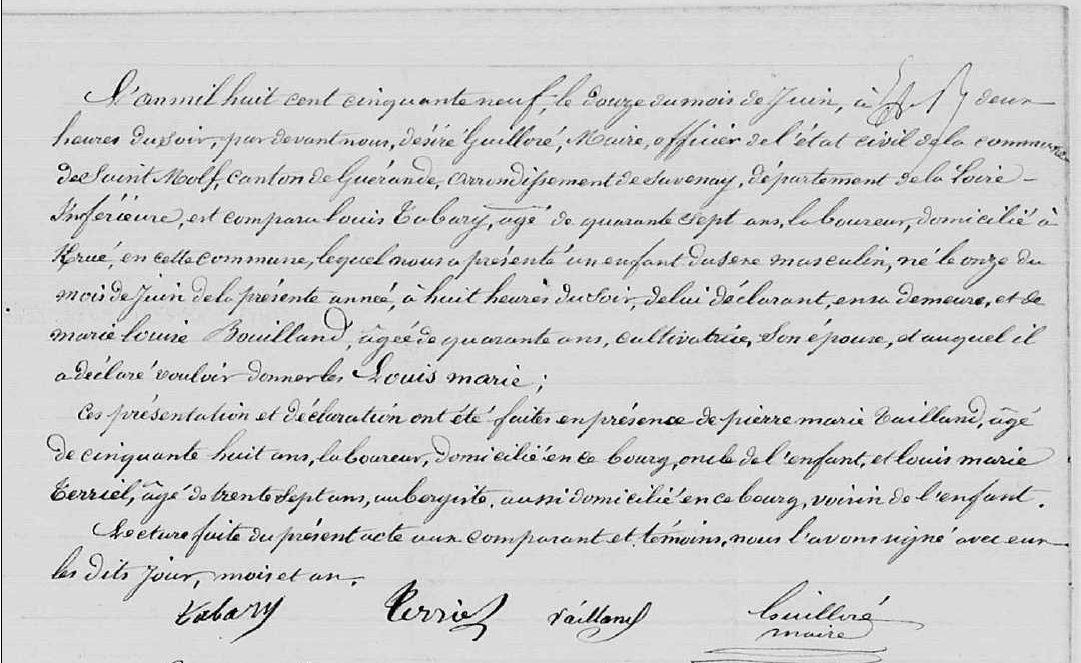 L'an mil huit cent cinquante neuf, le douze du mois de Juin, à deux
heures du soir, par devant nous, désiré Guilloré, Maire, officier de l'état civil de la commune
de Saint Molf, Canton de Guérande, arrondissement de Savenay, département de la Loire-
Inférieure, est comparu louis Tabary, agé de quarante sept ans, laboureur, domicilié à
Krué, en cette commune, lequel nous a présenté un enfant du sexe masculin, né le onze du
mois de Juin de la présente année, à huit heures du soir, de lui déclarant, en sa demeure, et de
marie louise Bouilland, âgée de quarante ans, cultivatrice, son épouse, et auquel il
a déclaré vouloir donner les Louis marie;
Ces présentation et déclaration ont été faites en présence de pierre marie Vailland, âgé
de cinquante huit ans, laboureur, domicilié en ce bourg, oncle de l'enfant, et louis marie
Terriel, âgé de trente sept ans, aubergiste, aussi domicilié en ce bourg, voisin de l'enfant.
Lecture faite du présent acte aux comparant et témoins, nous l'avons signé avec eux
les dits jour, mois et an.
Tabary Terriel Vailland Guilloré
maire